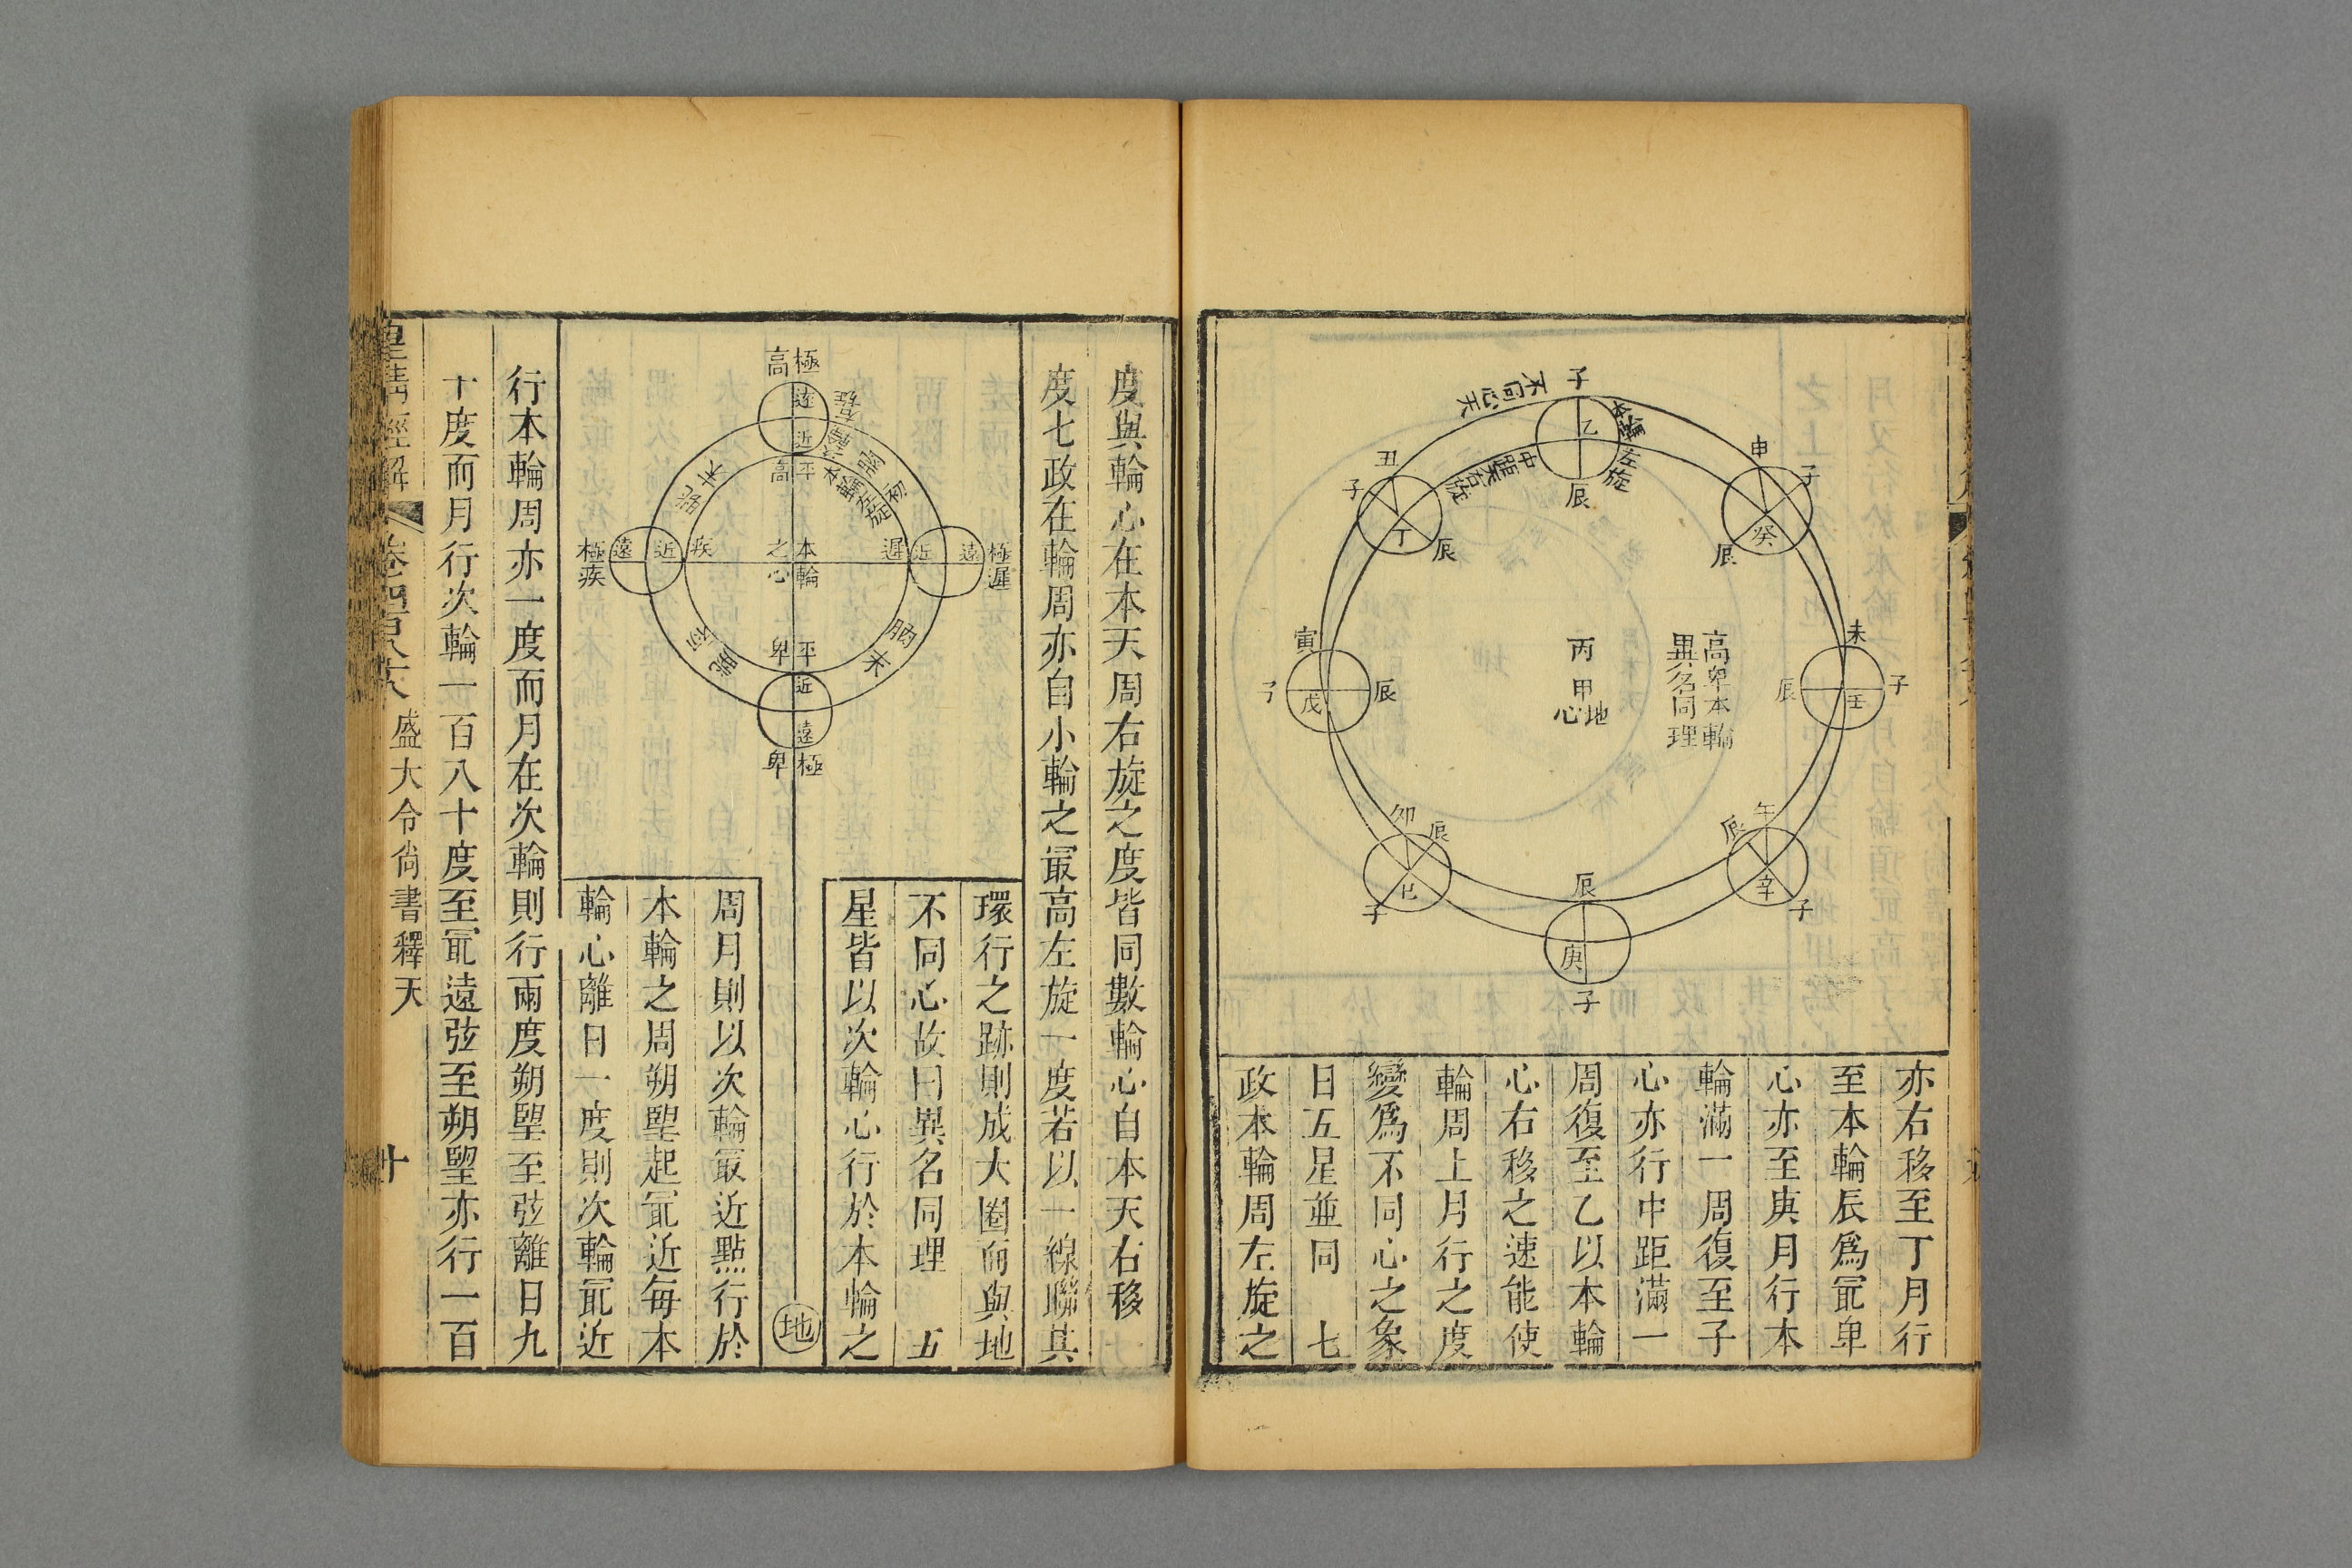 子
不同心天
本輪左旋
中距天右旋
乙
辰
丑
子
丁
辰
申
子
癸
辰
寅
子
戊
辰
丙
甲
地心
高卑本輪
異名同理
未
子
壬
辰
卯
辰
巳
子
午
辰
辛
子
辰
庚
子
亦右移至丁月行
至本輪辰爲冣卑
心亦至庚月行本
輪滿一周復至子
心亦行中距滿一
周復至乙以本輪
心右移之速能使
輪周上月行之度
變爲不同心之象
日五星並同　七
政本輪周左旋之
度與輪心在本天周右旋之度皆同數輪心自本天右移
度七政在輪周亦自小輪之冣高左旋一度若以一線聯其
環行之跡則成大圈而與地
不同心故曰異名同理　五
星皆以次輪心行於本輪之
極高
遠
近
平高
本輪左旋
次輪右旋
朒初
朓末
極疾
遠
近
疾
本輪
之心
遲
近
遠
極遲
朓初
朒末
平卑
近
遠
極卑
地
周月則以次輪冣近點行於
本輪之周朔朢起冣近每本
輪心離日一度則次輪冣近
行本輪周亦一度而月在次輪則行兩度朔朢至弦離日九
十度而月行次輪一百八十度至冣遠弦至朔朢亦行一百
皇清經解
卷四百八十八
盛大令尚書釋天
十